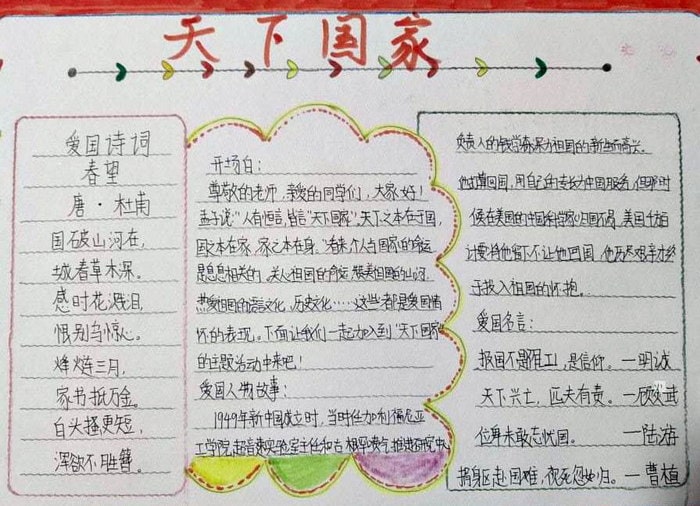 天下国家
爱国诗词
春望
唐·杜甫
国破山河在，
城春草木深。
感时花溅泪，
恨别鸟惊心。
烽火连三月，
家书抵万金。
白头搔更短，
浑欲不胜簪。
开场白：
尊敬的老师，亲爱的同学们，大家好！
孟子说"人有恒言，皆言'天下国家'。天下之本在于国，
国之本在家，家之本在身。"看来，个人与国家的命运
是息息相关的。关心祖国的命运，赞美祖国的山河，
热爱祖国的语言文化、历史文化……这些都是爱国情
怀的表现。下面让我们一起加入到"天下国家"
的主题活动中来吧！
爱国人物故事：
1949年新中国成立时，当时任加利福尼亚
工学院超音速实验室主任和古根罕喷气推进研究中
负责人的钱学森深为祖国的新生而高兴。
他打算回国，用自己的专长为中国服务，但那时
候在美国的中国科学家归国不易，美国千方百
计要将他留下不让他回国，他历尽艰辛才终
于投入祖国的怀抱。
爱国名言：
报国不是征工，是信仰。—明诚
天下兴亡，匹夫有责。—顾炎武
位卑未敢忘忧国。—陆游
捐躯赴国难，视死忽如归。—曹植